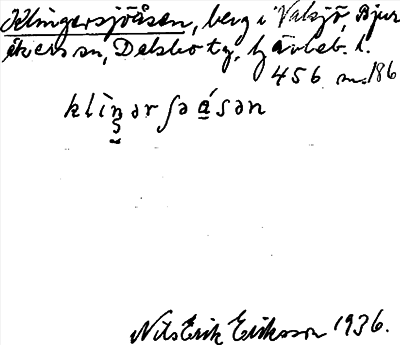 Klingersjöåsen, berg i Valsjö, Bjur
åkers sn, Delsbo tg, Gävleb. l.
456 m.
klìn̥ər ʃə ɑ́sən
Nils Erik Eriksson 1936.